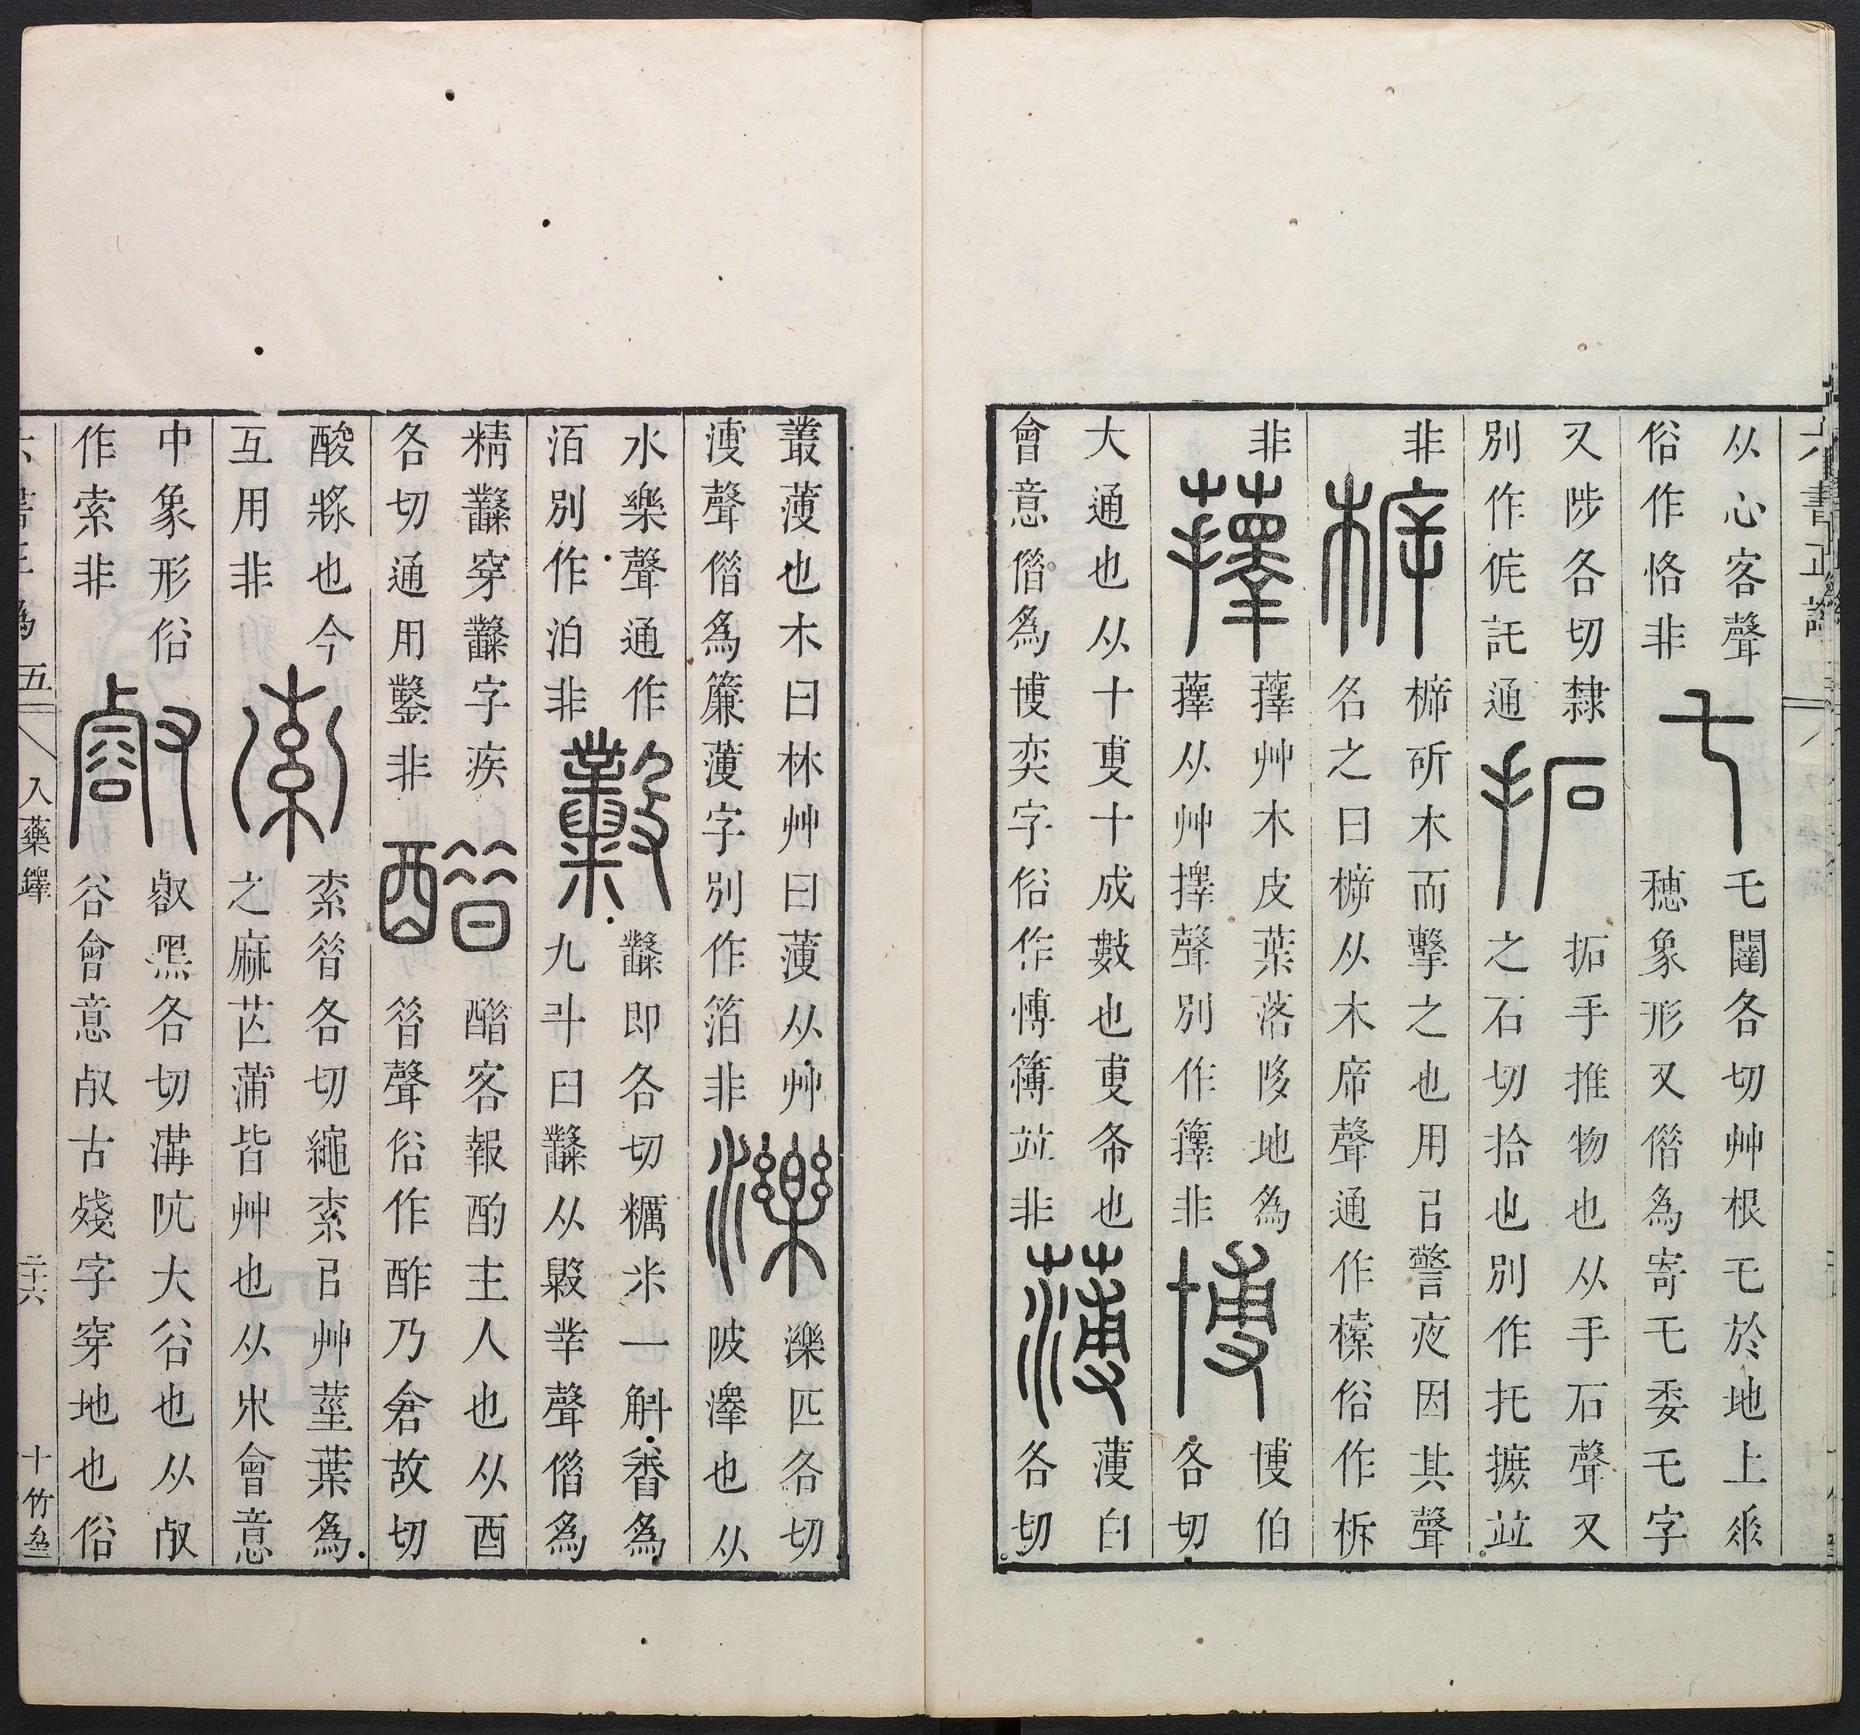 六書正譌
从心客聲
俗作恪非
乇
乇闥各切艸根乇於地上𠂹
穗象形又偕爲寄乇委乇字
又陟各切隸
別作侂託通
拓
拓手推物也从手石聲又
之石切拾也別作托摭竝
非
㭊
㭊斫木而擊之也用㠯警夜因其聲
名之曰㭊从木㡿聲通作欜俗作柝
非
蘀
蘀艸木皮葉落陊地爲
蘀从艸擇聲別作籜非
博
博伯
各切
大通也从十尃十成數也尃布也
會意偕爲博奕字俗作愽簙竝非
薄
薄白
各切
叢薄也木曰林艸曰薄从艸
溥聲偕爲簾薄字別作箔非
濼
濼匹各切
陂澤也从
水樂聲通作
洦別作泊非
糳
糳即各切糲米一斛舂爲
九斗曰糳从毇丵聲偕爲
精糳穿糳字疾
各切通用鑿非
醋
醋客報酌主人也从酉
㫺聲俗作酢乃倉故切
酸𤖅也今
互用非
索
索昔各切繩索㠯艸莖葉爲
之麻苉蒲皆艸也从𣎵會意
中象形俗
作索非
叡
㕡黑各切溝阬大谷也从𣦼
谷會意𣦼古殘字穿地也俗
六書正譌 五 入藥鐸 二十六 十竹齋